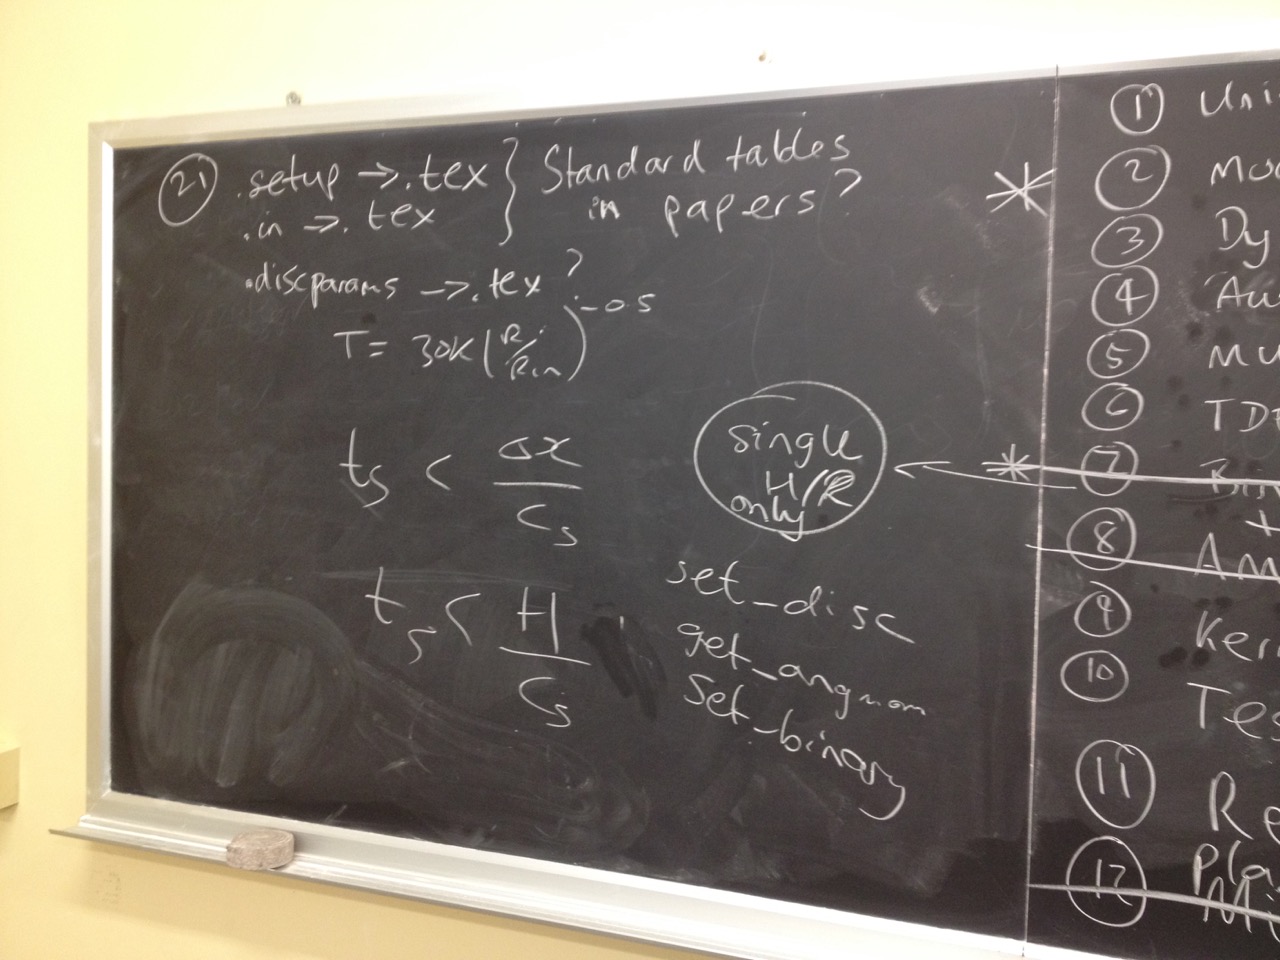 21 .setup → .tex } Standard tables
.in → .tex in papers?
.discparams → .tex ?
T = 30K (R/Rin)^-0.5
ts < Δx / cs
single
H/R
only
ts < H / cs
set_disc
get_angmom
set_binary
1 Uni
* 2 Mo
3 Dy
4
5 Mu
6 TD
* 7 Bin
+
8 Am
9 Ker
10 Tes
11 Re
12 Pla
Mi